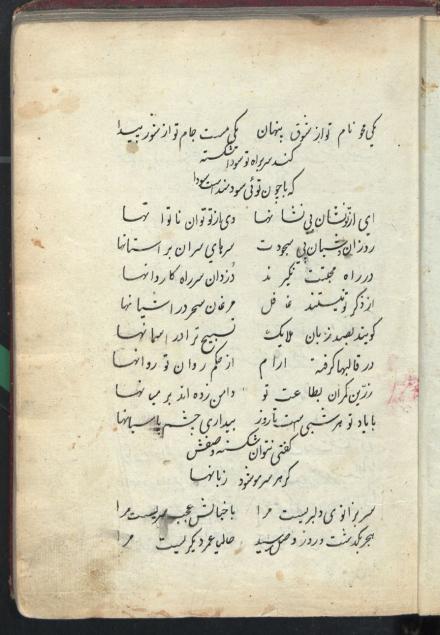 یکی محو نام تو از شوق پنهان یکی مست جام تو از شور پیدا
کند سر براه تو سودا شکسته
که با چون توئی سودمند است سودا
ای از تو نشان بی نشانها وی از تو توان ناتوانها
روزان و شبان پی سجودت سرهای سران بر آستانها
در راه محبتت نگیرند دزدان سر راه کاروانها
از ذکر تو نیستند غافل مرغان سحر در آشیانها
گویند بصد زبان ملایک تسبیح ترا در آسمانها
در قالبها گرفته آرام از حکم روان تو روانها
زرین کمران بطاعت تو دامن زده اند بر میانها
با یاد تو هر شبی است تا روز بیداری چشم پاسبانها
گفتی نتوان شکسته وصفش
گر هر سر مو شود زبانها
سر بزانوی دلبریست مرا با خیالش عجب سریست مرا
هجر بگذشت و روز وصل رسید حالیا عمر دیگریست مرا